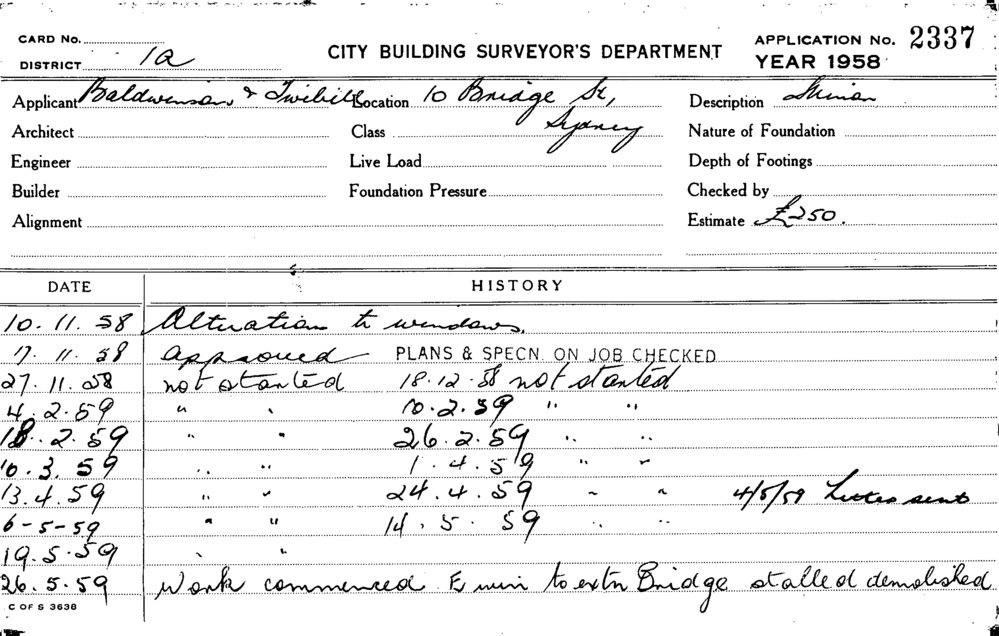 CARD No.
DISTRICT 1a
CITY BUILDING SURVEYOR'S DEPARTMENT
APPLICATION No. 2337
YEAR 1958
Applicant Baldwinson & Twibill Location 10 Bridge St, Sydney Description
Architect Class Nature of Foundation
Engineer Live Load Depth of Footings
Builder Foundation Pressure Checked by
Alignment Estimate £250.
DATE HISTORY
10.11.58 Alteration to windows.
17.11.58 Approved PLANS & SPECN. ON JOB CHECKED
27.11.58 not started 18.12.58 not started
4.2.59 " " 10.2.59 " "
18.2.59 " " 26.2.59 " "
10.3.59 " " 1.4.59 " "
13.4.59 " " 24.4.59 " " 4/5/59 Letter sent
6-5-59 " " 14.5.59 " "
19.5.59 " "
26.5.59 Work commenced to extn Bridge demolished
C OF S 3638